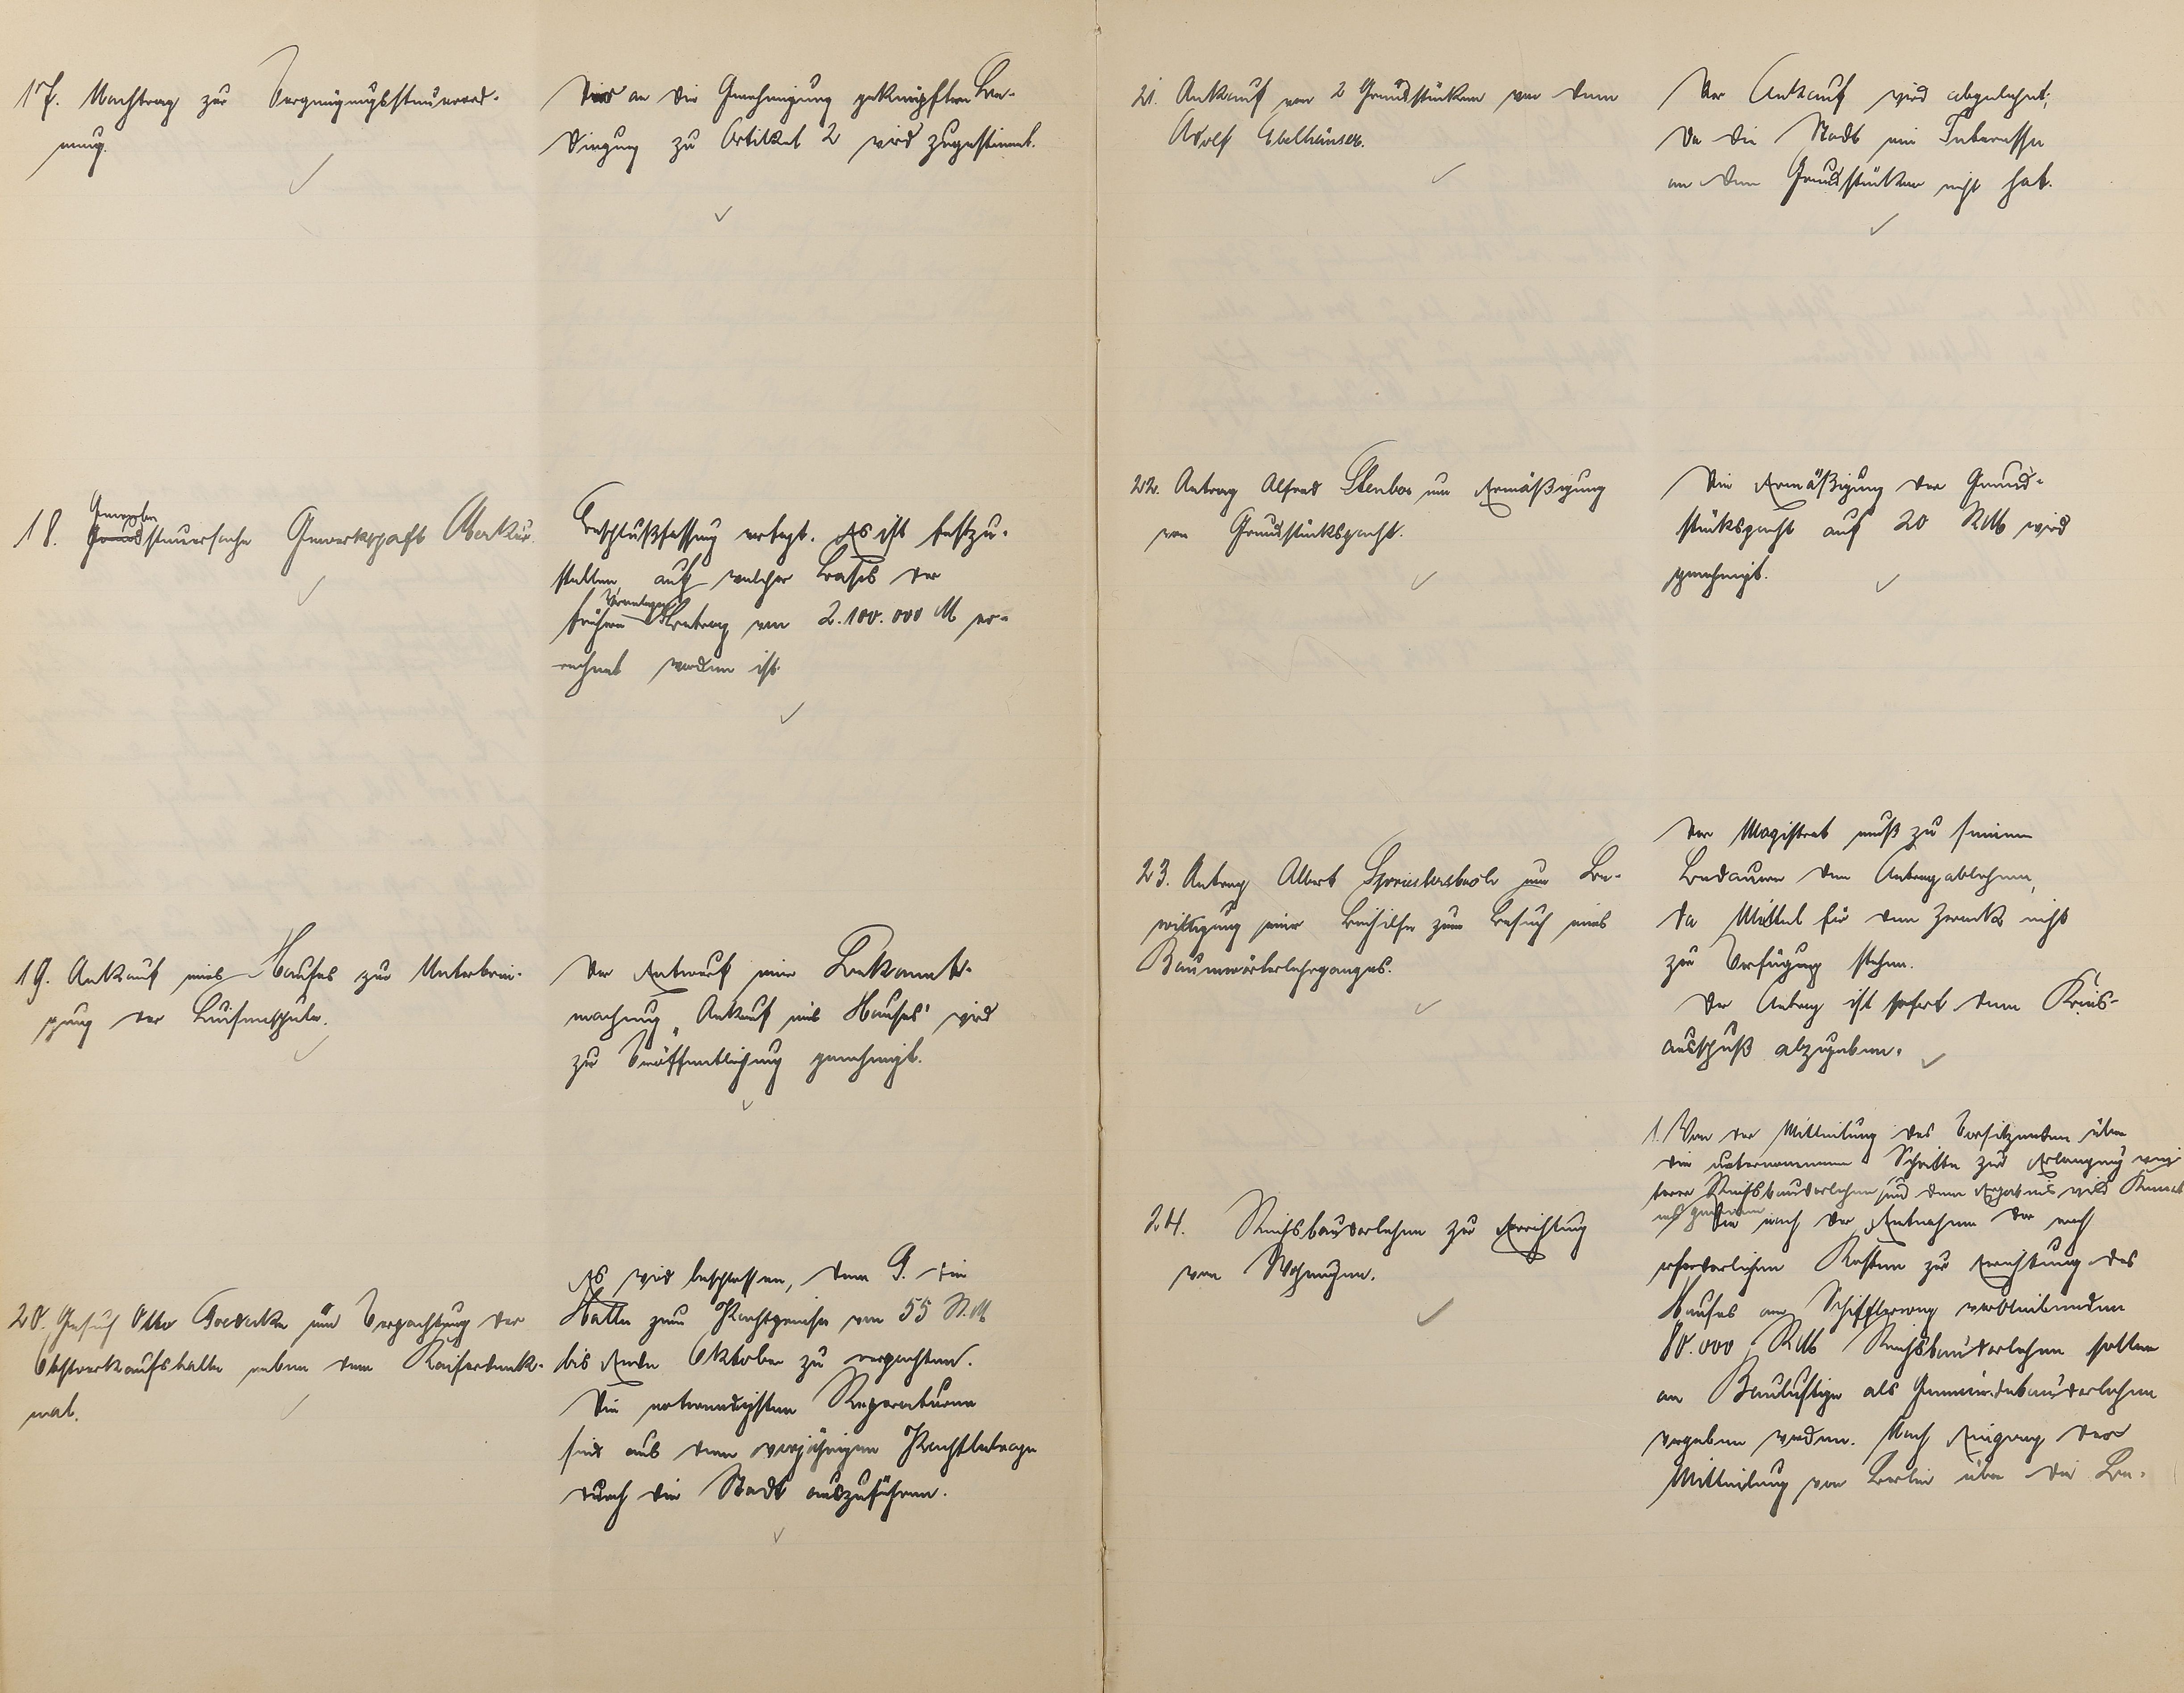 17. Nachtrag zur Vergnügungssteuerord-
nung.
Der an die Genehmigung geknüpften Be-
dingung zu Artikel 2 wird zugestimmt.
18. Gewerbe
Grundsteuersache Gewerkschaft Oberkür.
Beschlußfassung vertagt. Es ist festzu-
stellen, auf welcher Basis der
frühere Betrag von 2.100.000 M er-
rechnet worden ist.
19. Ankauf eines Hauses zur Unterbrin-
gung der Luisenschule.
Der Entwurf einer Bekannt-
machung "Ankauf eines Hauses" wird
zur Veröffentlichung genehmigt.
20. Gesuch Otto Goedecke um Verpachtung der
Obstverkaufshalle neben dem Kaiserdenk-
mal.
Es wird beschlossen, dem G. die
Halle zum Pachtpreise von 55 R.M
bis Ende Oktober zu verpachten.
Die notwendigsten Reparaturen
sind aus dem diesjährigen Pachtbetrage
durch die Stadt auszuführen.
21. Ankauf von 2 Grundstücken von dem
Adolf Ebelhäuser.
Der Ankauf wird abgelehnt,
da die Stadt ein Interesse
an den Grundstücken nicht hat.
22. Antrag Alfred um Ermäßigung
von Grundstückspacht.
Die Ermäßigung der Grund-
stückspacht auf 20 RM wird
genehmigt.
23. Antrag Albert um Be-
willigung einer Beihilfe zum Besuch eines
Baumwärterlehrganges.
Der Magistrat muß zu seinem
Bedauern den Antrag ablehnen,
da Mittel für den Zweck nicht
zur Verfügung stehen.
Der Antrag ist sofort dem Kreis-
ausschuß abzugeben.
24. Reichsbaudarlehen zur Errichtung
von Wohnungen.
1. Von der Mitteilung des Vorsitzenden über
die unternommenen Schritte zur Erlangung wei-
terer Reichsbaudarlehen und dem Ergebnis wird Kennt-
nis genommen
Die nach der Entnahme der noch
erforderlichen Kosten zur Errichtung des
Hauses am verbleibenden
80.000 RM Reichsbaudarlehen sollen
an Baulustige als Gemeindebaudarlehen
vergeben werden. Nach Eingang der
Mitteilung von Berlin über die Be-